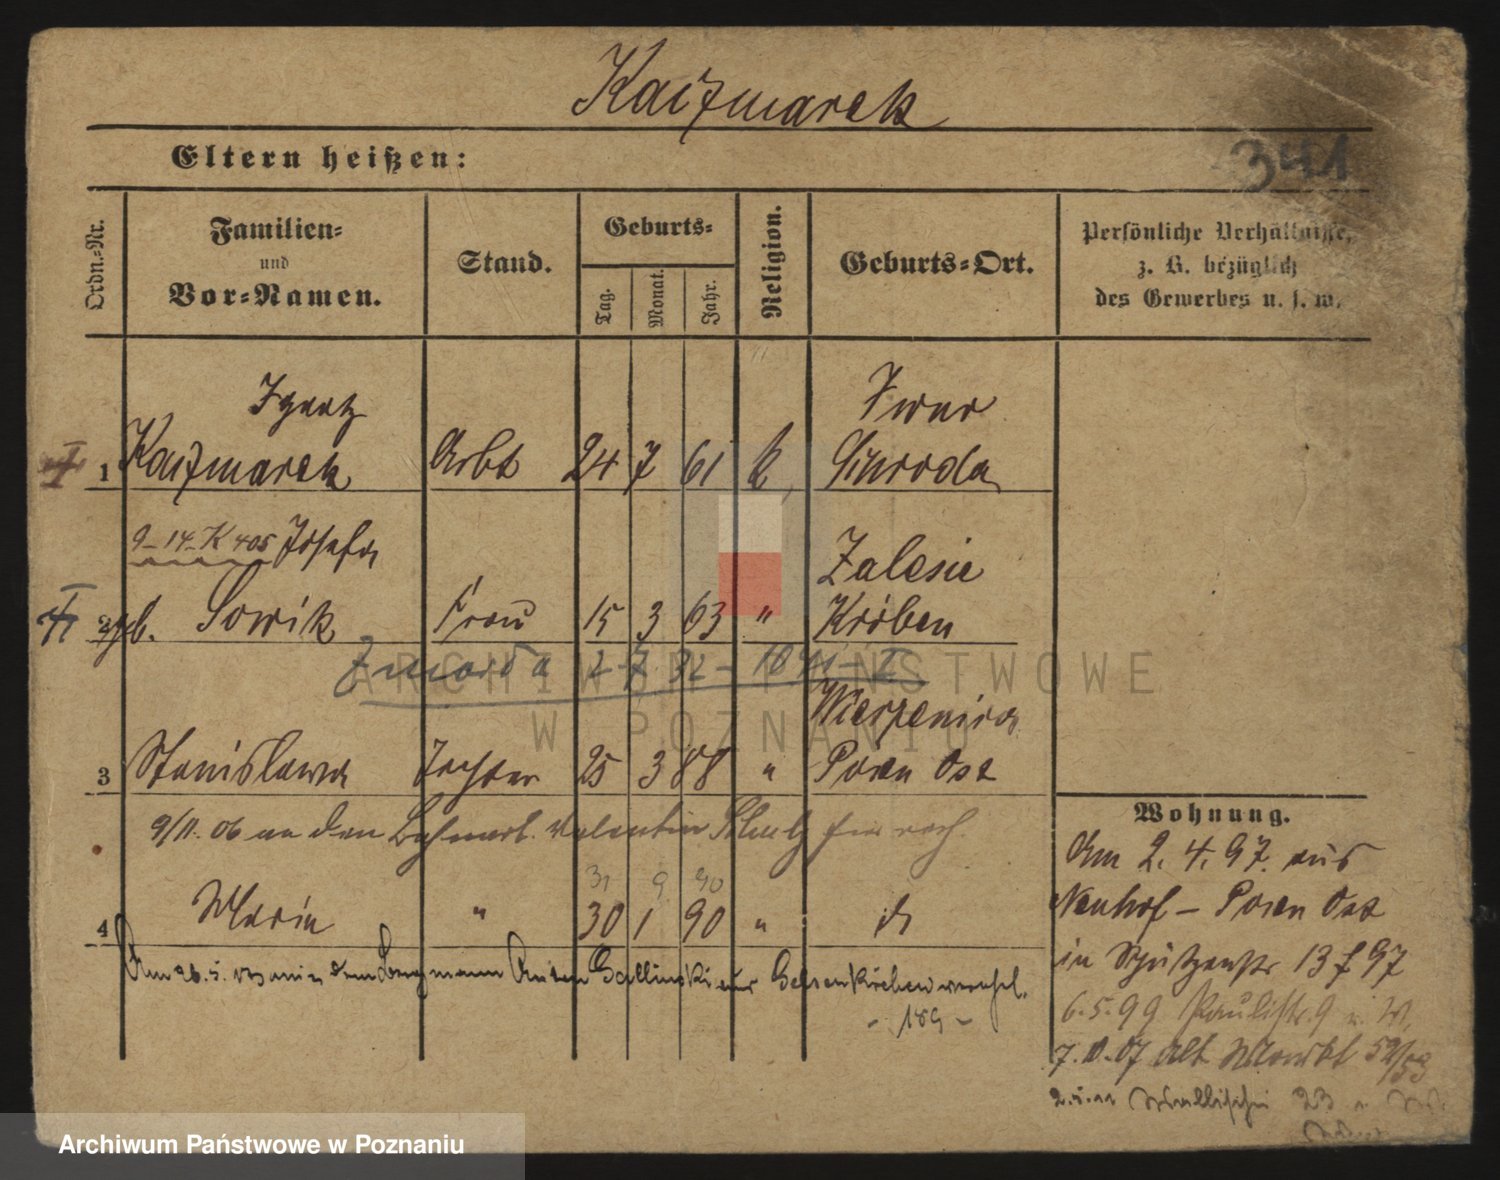 Kaczmarek
Eltern heißen:
341
Ordn.-Nr.
Familien-
und
Vor-Namen.
Stand.
Geburts-
Tag.
Monat.
Jahr.
Religion.
Geburts-Ort.
Persönliche Verhältnisse,
z. B. bezüglich
des Gewerbes u. s. w.
Ignatz
Iwno
1 Kaczmarek Arbt 24 7 61 k Schroda
9-14-K 405 Josefa
Zalesie
2 geb. Sowik Frau 15 3 63 " Kröben
2-7 32
Wierzenica
3 Stanislawa Tochter 25 3 88 " Posen Ost
9/11. 06 an den Valentin
31 9 90
4 Maria " 30 1 90 "
Am 26. 5. dem Bergmann Anton Gallinski aus Gelsenkirchen verehel.
- 189 -
Wohnung.
Am 2. 4. 97. aus
Neuhof - Posen Ost
in Schützenstr 13 97
6. 5. 99 Paulistr. 9
7. 07 Alt Markt 52/53
Wallischei 23
ARCHIWUM PAŃSTWOWE
W POZNANIU
Archiwum Państwowe w Poznaniu